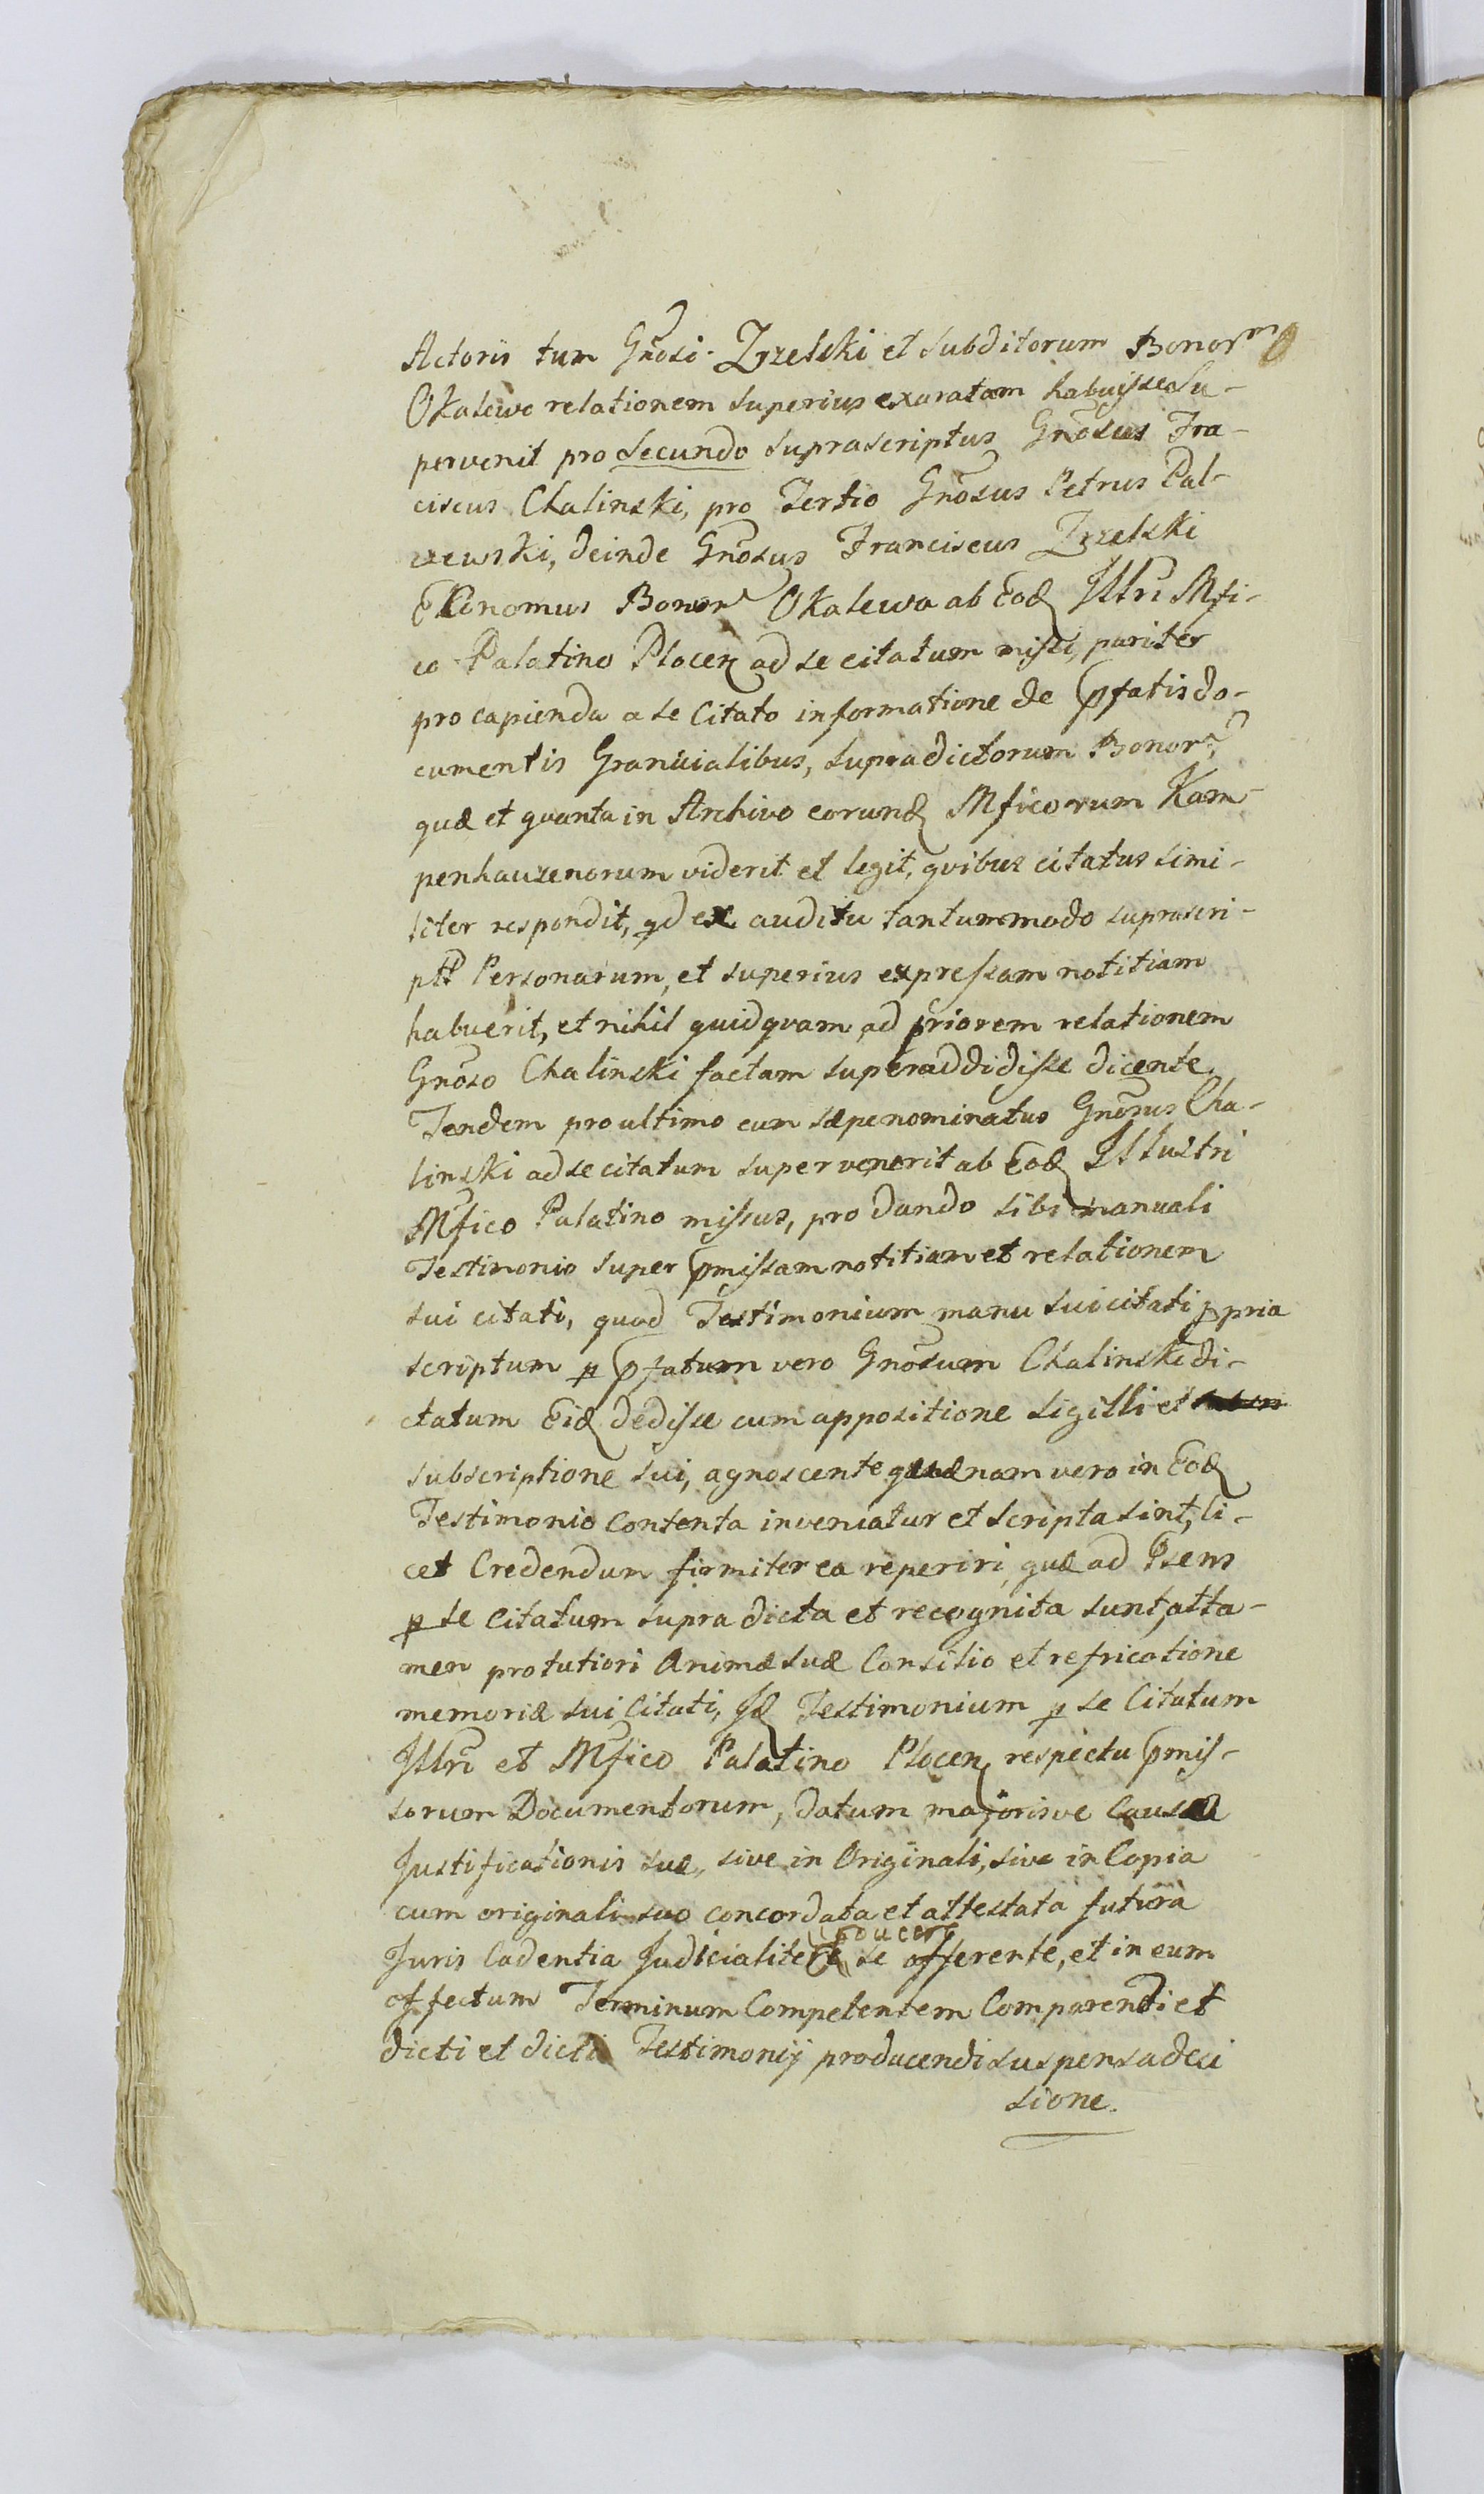 Actoris tum Gnosi Zrzelski et Subditorum Bonor
Okalewo relationem superius exaratam habuisse Su-
pervenit pro Secundo supra scriptus Gnosus Fra-
ciscus Chalinski, pro Tertio Gnosus Petrus Pal-
czewski, deinde Gnosus Franciscus Zrzelski
Ekonomus Bonor Okalewa ab Eod Illri Mfi-
co Palatino Plocen ad se citatum missi, pariter
pro capienda a se Citato informatione de pfatis do-
cumentis Granicialibus, supradictorum Bonor,
quæ et quanta in Archivo eorund Mficorum Kam-
penhauzenorum viderit et legit, quibus citatus simi-
liter respondit, qd ex auditu tantummodo suprascri-
pt Personarum, et superius expressam notitiam
habuerit, et nihil quidquam ad priorem relationem
Gnoso Chalinski factam superaddidisse dicente.
Tandem pro ultimo cum sæpenominatus Gnosus Cha-
linski ad se citatum supervenerit ab Eod Illustri
Mfico Palatino missus, pro dando sibi manuali
Testimonio super pmissam notitiam et relationem
sui citati, quod Testimonium manu sui citati ppria
scriptum p pfatum vero Gnosum Chalinski di-
ctatum Eid dedisse cum appositione Sigilli et
subscriptione sui, agnoscente quænam vero in Eod
Testimonio Contenta inveniatur et scripta sint, li-
cet Credendum firmiter ea reperiri, quæ ad Psens
p se Citatum supra dicta et recognita sunt, atta-
men pro tutiori Animæ suæ Consilio et refricatione
memoriæ sui Citati, Id Testimonium p se Citatum
Illri et Mfico Palatino Plocen respectu pmis-
sorum Documentorum, datum majorisve Causa
Justificationis suæ, sive in Originali, sive in Copia
cum originali suo concordata et attestata futura
Juris Cadentia Judicialiter producere se offerente, et in eum
effectum Terminum Competentem Comparendi et
dicti et dicti Testimonij producendi suspensa deci
sione.